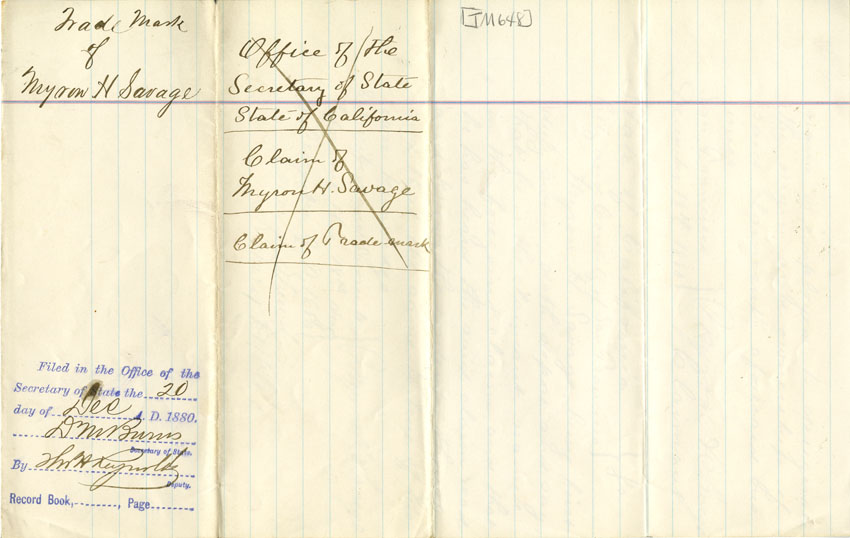 Trade Mark
of
Myron H Savage
Filed in the Office of the
Secretary of State the 20
day of Dec A. D. 1880.
D M Burns
Secretary of State.
By Thos H Reynolds
Deputy.
Record Book, , Page
Office of the
Secretary of State
State of California
Claim of
Myron H. Savage
Claim of Trade mark
[TM648]